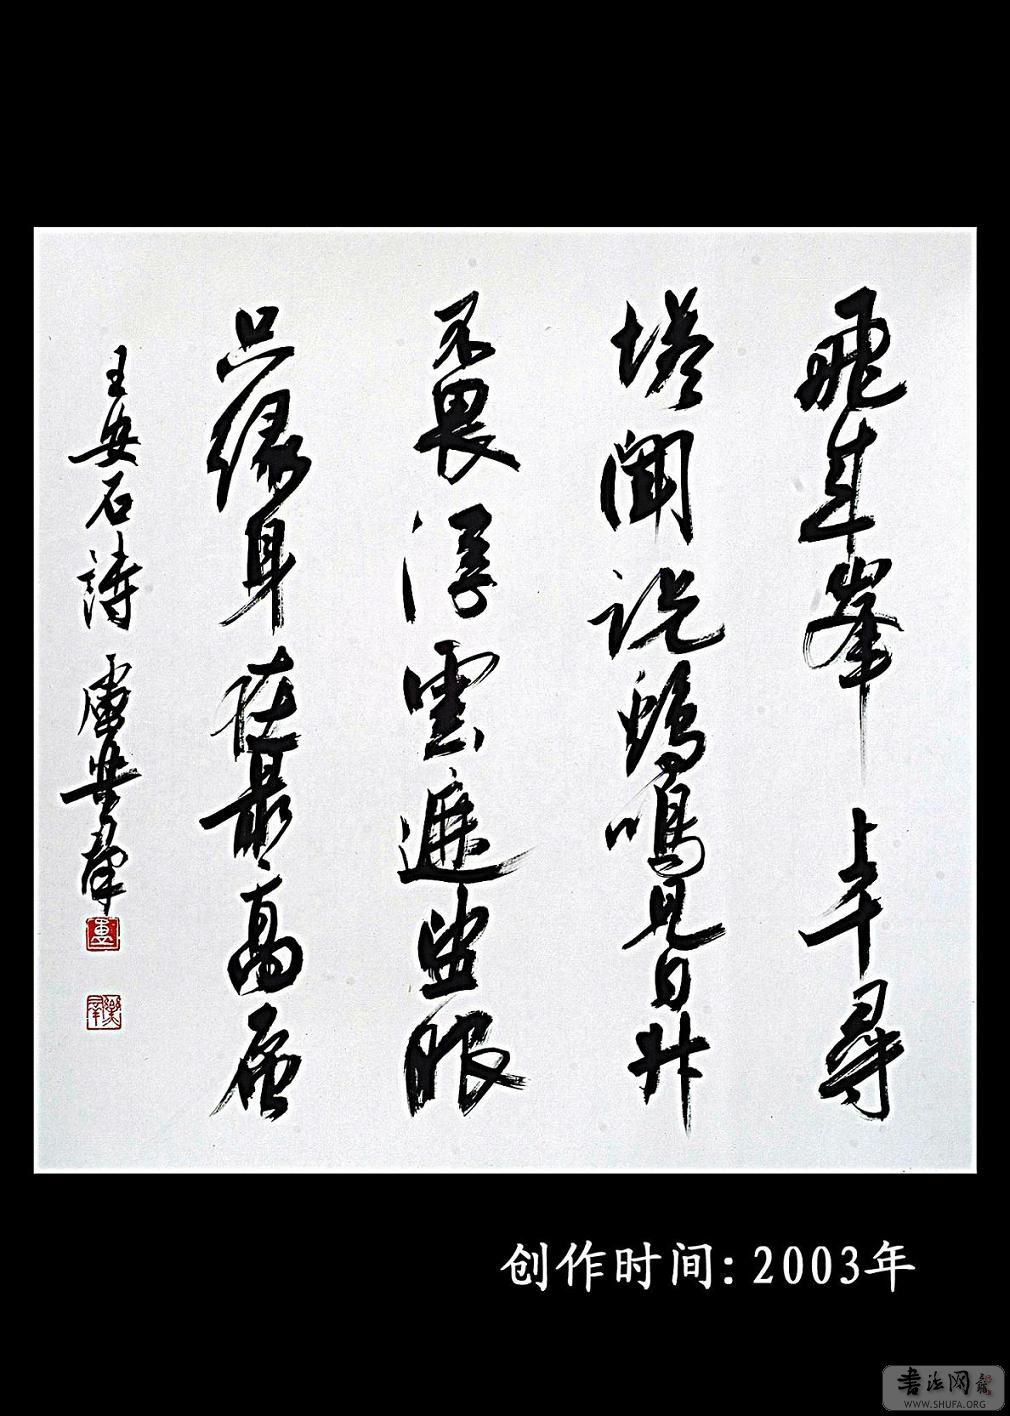 飛來峯上千尋
塔聞說鷄鳴見日升
不畏浮雲遮望眼
只緣身在最高層
王安石詩 盧
创作时间：2003年
书法网
WWW.SHUFA.ORG